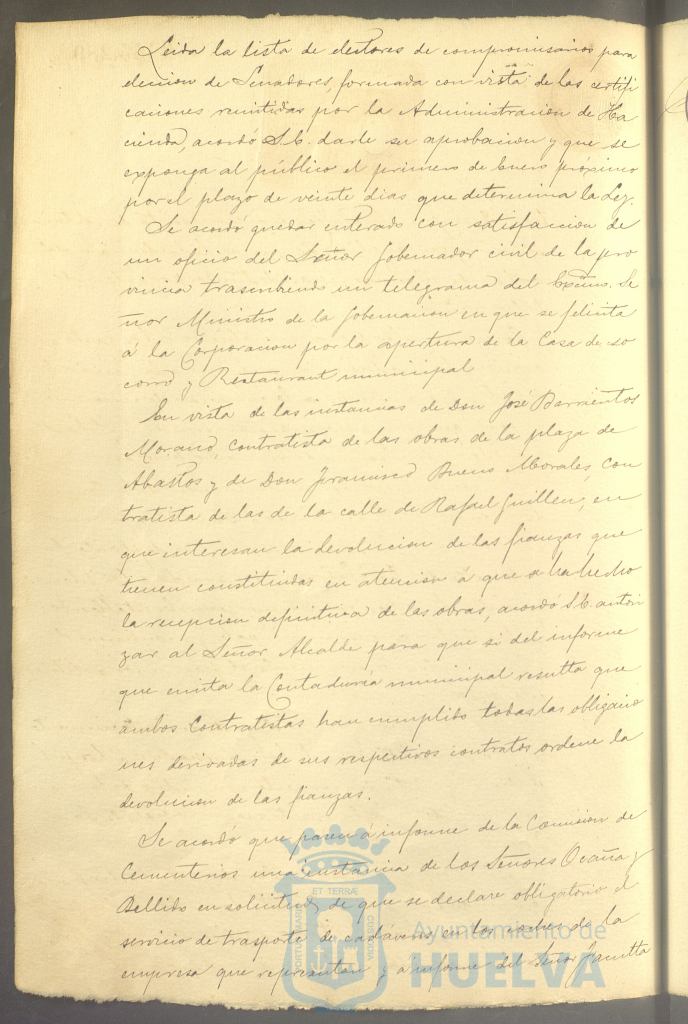 Leida la lista de electores de compromisarios para
eleccion de Senadores, formada con vista de las certifi
caciones remitidas por la Administracion de Ha
cienda, acordó S.E. darle su aprobacion y que se
exponga al público el primero de Enero próximo
por el plazo de veinte dias que determina la Ley.
Se acordó quedar enterado con satisfaccion de
un oficio del Señor Gobernador civil de la pro
vincia trascribiendo un telegrama del Excmo. Se
ñor Ministro de la Gobernacion en que se felicita
á la Corporacion por la apertura de la Casa de so
corro y Restaurant municipal
En vista de las instancias de Don José Barrientos
Morano, contratista de las obras de la plaza de
Abastos y de Don Francisco Bueno Morales, con
tratista de las de la calle de Rafael Guillen, en
que interesan la devolucion de las fianzas que
tienen constituidas en atencion á que se ha hecho
la recepcion definitiva de las obras, acordo S.E. autori
zar al Señor Alcalde para que si del informe
que emita la Contaduria municipal resulta que
ambos Contratistas han cumplido todas las obligacio
nes derivadas de sus respectivos contratos ordene la
devolucion de las fianzas.
Se acordó que pasen á informe de la Comision de
Cementerios una instancia de los Señores Ocaña y
Bellido en solicitud de que se declare obligatorio el
servicio de trasporte de cadáveres en los coches de la
empresa que representan y a informe del Señor
ET TERRÆ
PORTUS MARIS
CUSTODIA
Ayuntamiento de
HUELVA